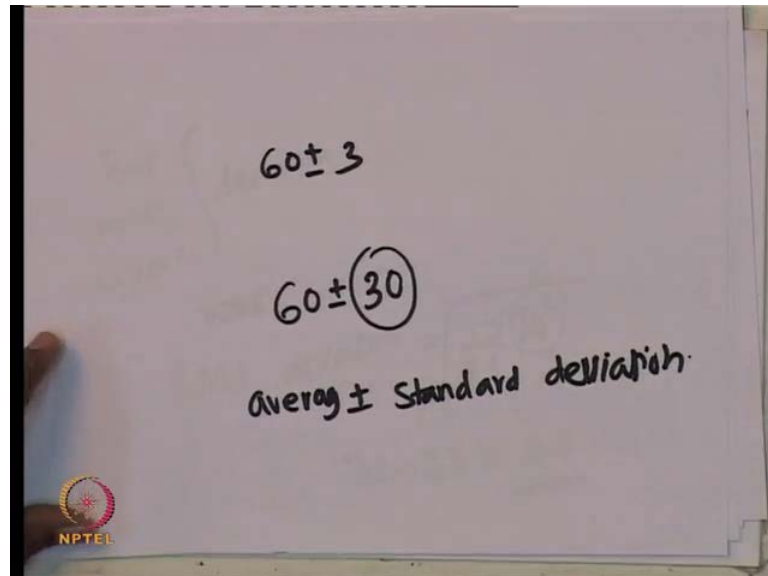 60 ± 3
60 ± 30
averag ± Standard deviation.
NPTEL